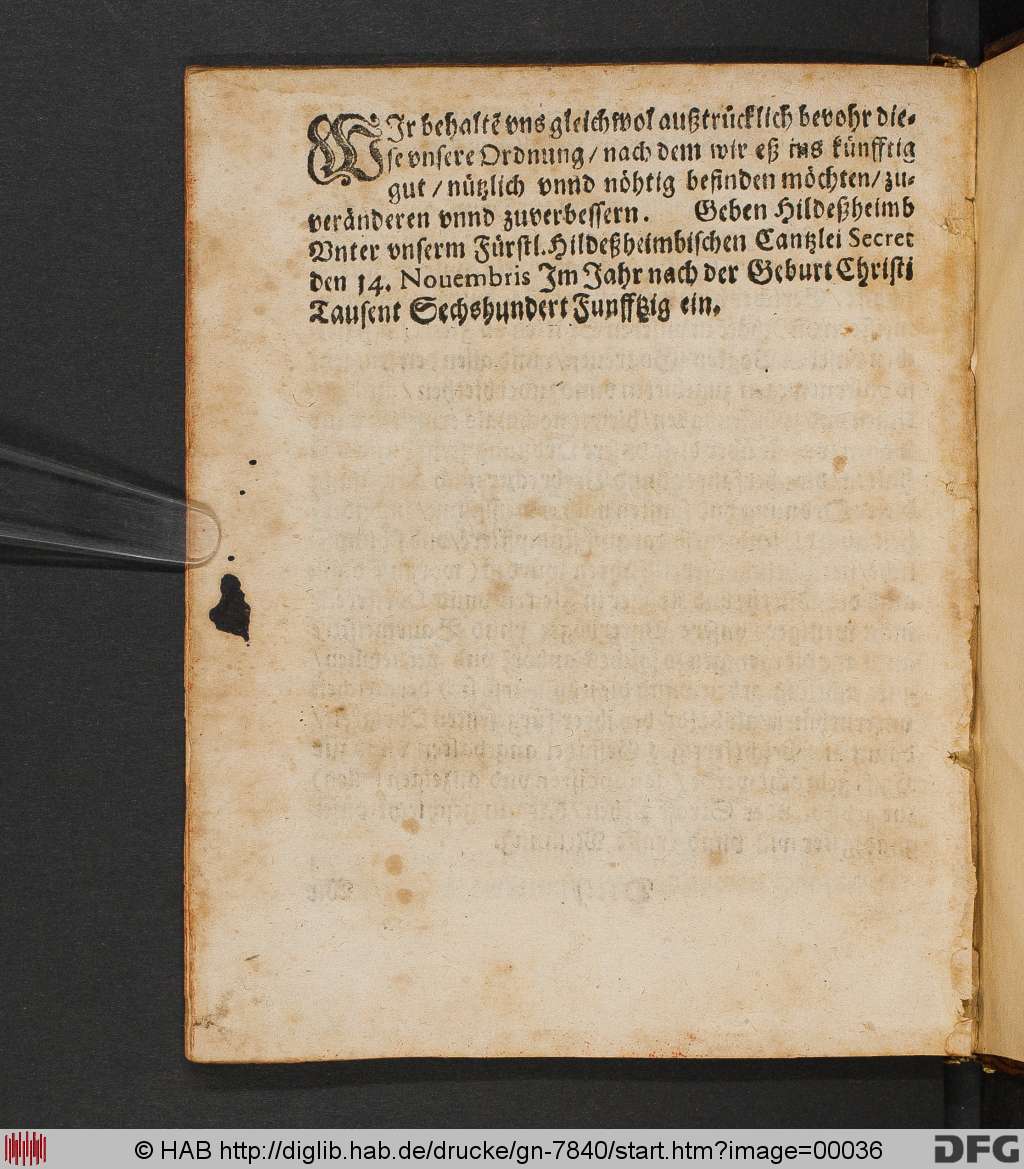 WJr behaltẽ vns gleichwol außtrücklich bevohr die-
se vnsere Ordnung / nach dem wir eß ins künfftig
gut / nützlich vnnd nöhtig befinden möchten / zu-
veränderen vnnd zuverbessern. Geben Hildeßheimb
Vnter vnserm Fürstl. Hildeßheimbischen Cantzlei Secret
den 14. Nouembris Im Jahr nach der Geburt Christi
Tausent Sechshundert Funfftzig ein.
© HAB http://diglib.hab.de/drucke/gn-7840/start.htm?image=00036
DFG